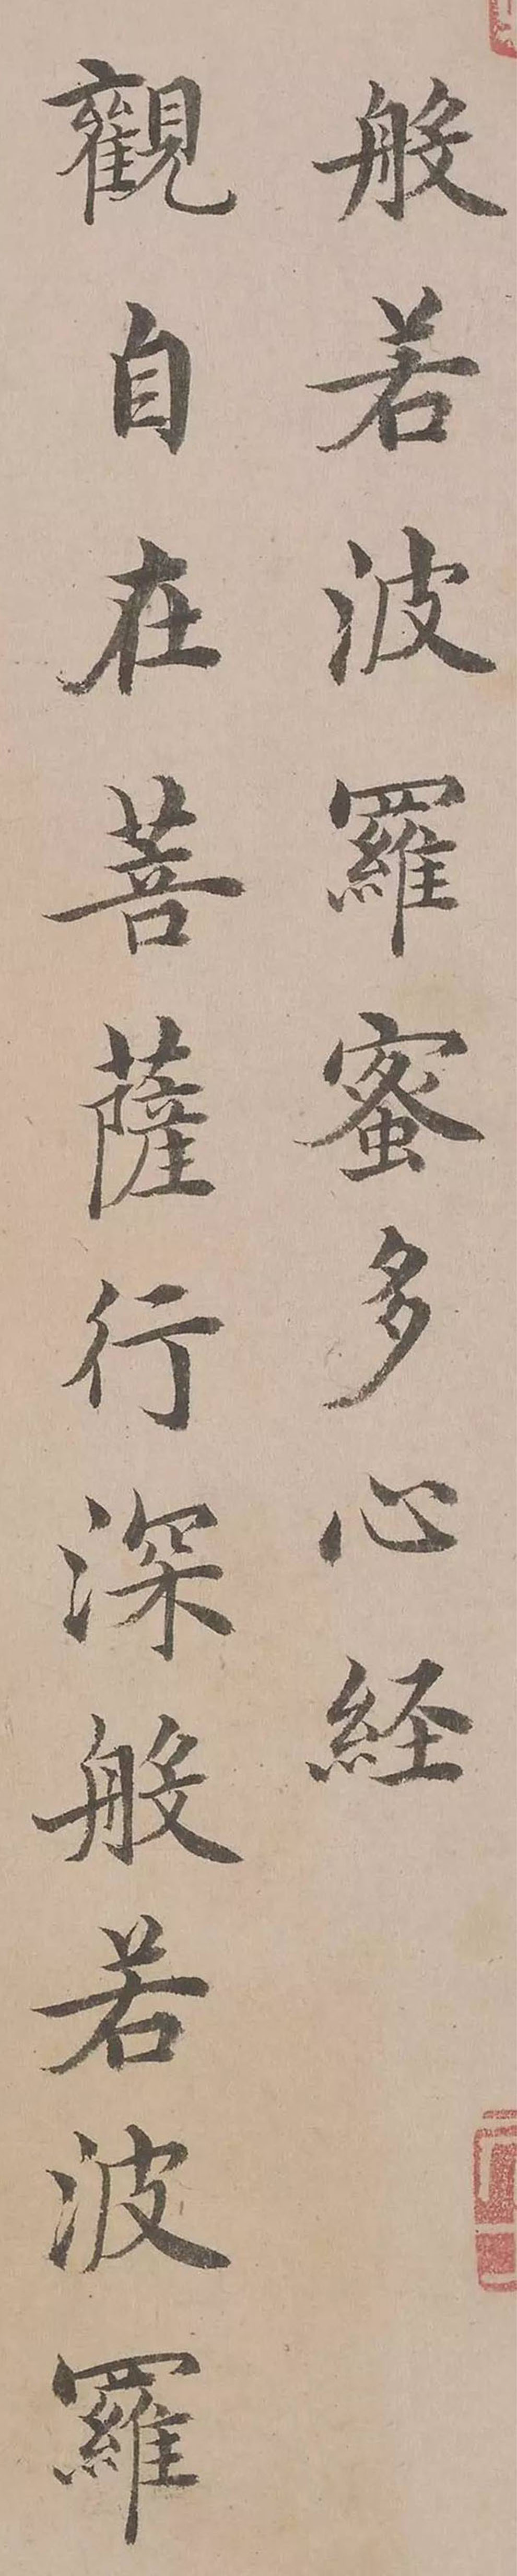 般若波羅蜜多心経
觀自在菩薩行深般若波羅